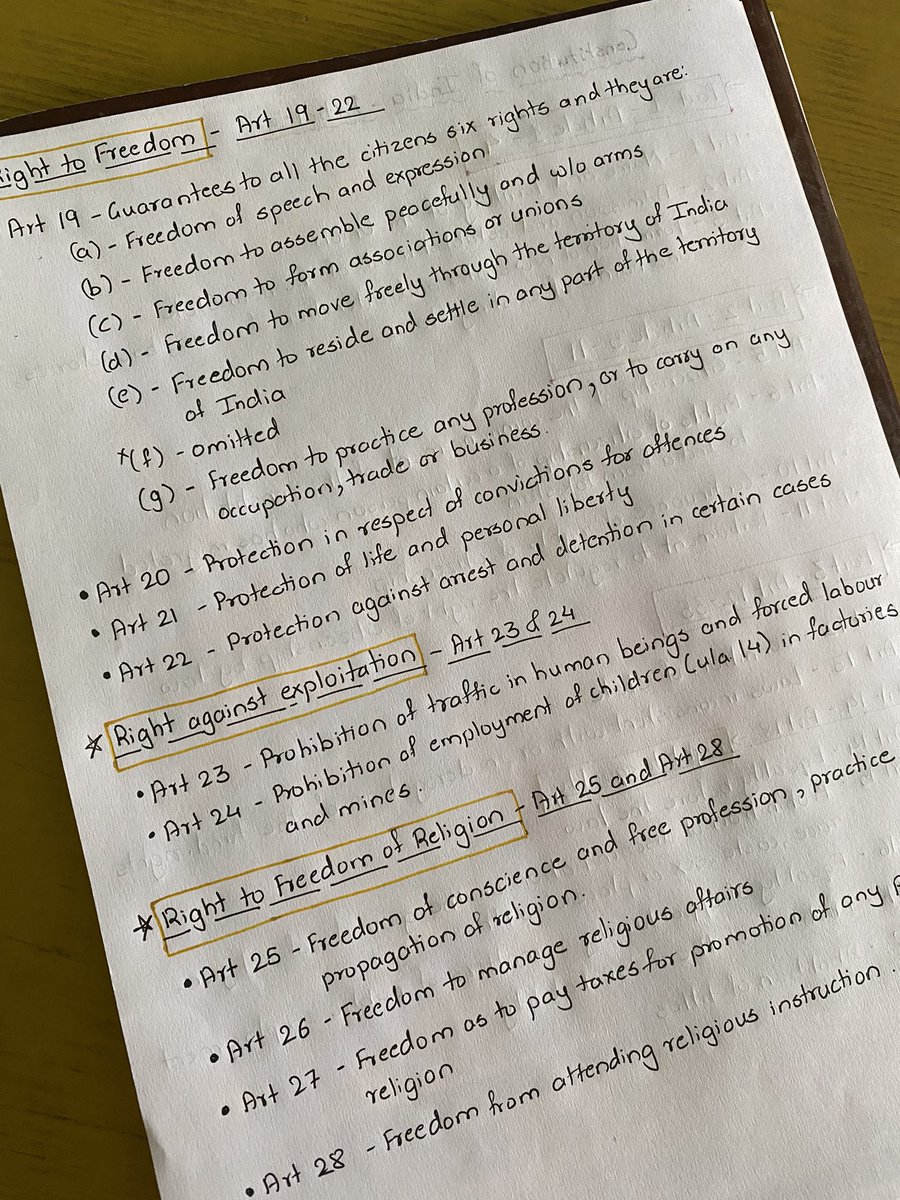 Right to Freedom - Art 19-22
Art 19 - Guarantees to all the citizens six rights and they are:
(a) - Freedom of speech and expression
(b) - Freedom to assemble peacefully and w/o arms
(c) - Freedom to form associations or unions
(d) - Freedom to move freely through the territory of India
(e) - Freedom to reside and settle in any part of the territory
of India
*(f) - omitted
(g) - Freedom to practice any profession, or to carry on any
occupation, trade or business.
• Art 20 - Protection in respect of convictions for offences
• Art 21 - Protection of life and personal liberty
• Art 22 - Protection against arrest and detention in certain cases
* Right against exploitation - Art 23 & 24
• Art 23 - Prohibition of traffic in human beings and forced labour
• Art 24 - Prohibition of employment of children (ula 14) in factories
and mines.
* Right to Freedom of Religion - Art 25 and Art 28
• Art 25 - Freedom of conscience and free profession, practice
propagation of religion.
• Art 26 - Freedom to manage religious affairs
• Art 27 - Freedom as to pay taxes for promotion of any
religion
• Art 28 - Freedom from attending religious instruction.